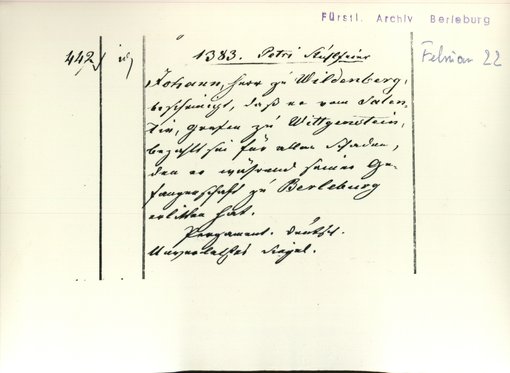 Fürstl. Archiv Berleburg
442,
1383. Petri Stuhlfeier
Februar 22
Johann, Herr zu Wildenberg,
bescheinigt, daß er vom Salen-
tin, Grafen zu Wittgenstein,
bezahlt sei für allen Schaden,
den er während seiner Ge-
fangenschaft zu Berleburg
erlitten hat.
Pergament. Deutsch.
Siegel.